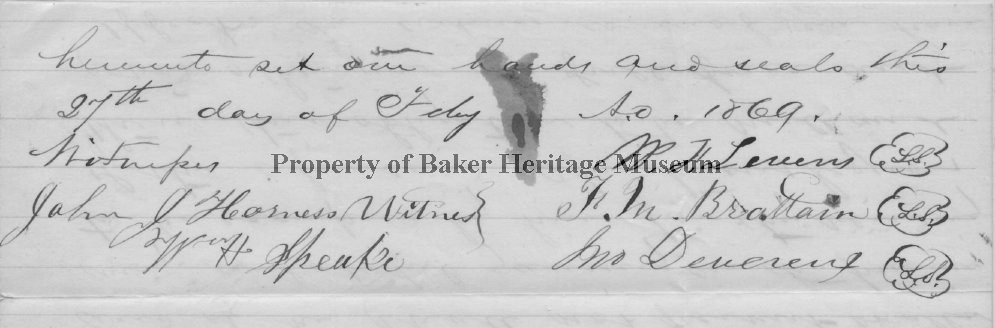 hereunto set our hands and seals this
27th day of Feby A.D. 1869.
Witnesses
Property of Baker Heritage Museum
Levens L.S.
John J Harness Witness F. M. Brattain L.S.
Wm H Speake Jno Devereux L.S.